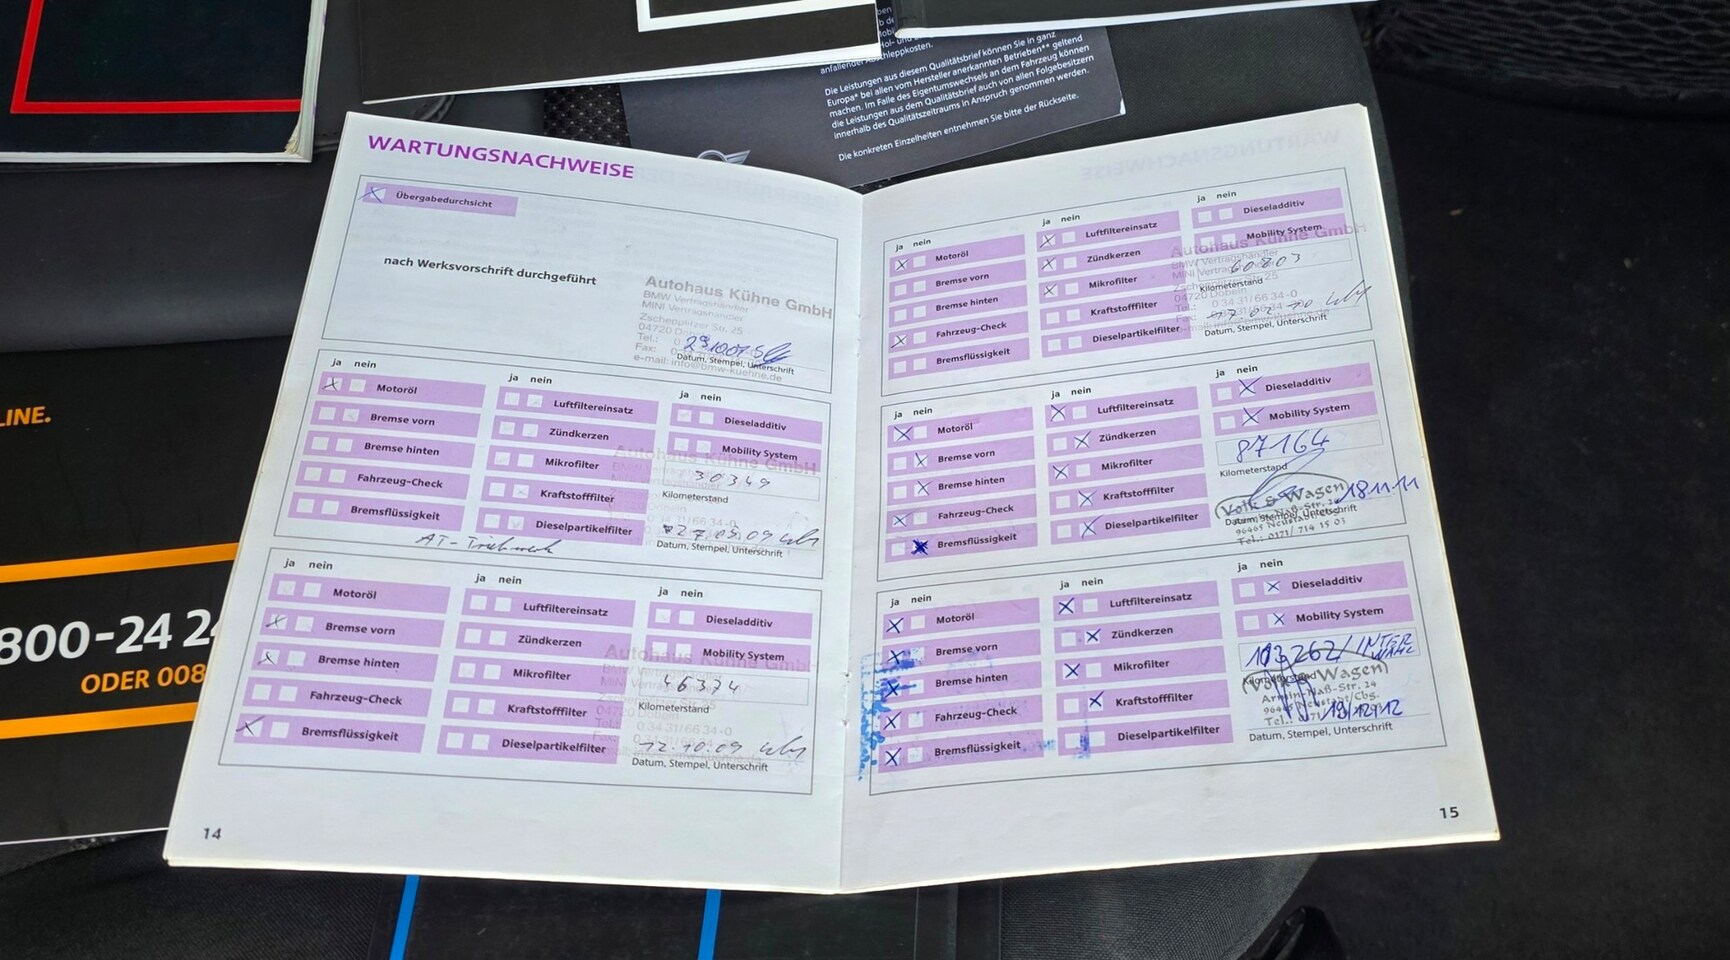 anfallender
schleppkosten.
Die Leistungen aus diesem Qualitätsbrief können Sie in ganz
Europa* bei allen vom Hersteller anerkannten Betrieben** geltend
machen. Im Falle des Eigentumswechsels an dem Fahrzeug können
die Leistungen aus dem Qualitätsbrief auch von allen Folgebesitzern
innerhalb des Qualitätszeitraums in Anspruch genommen werden.
Die konkreten Einzelheiten entnehmen Sie bitte der Rückseite.
LINE.
800-24 2
ODER 008
WARTUNGSNACHWEISE
Übergabedurchsicht
nach Werksvorschrift durchgeführt
Autohaus Kühne GmbH
BMW Vertragshändler
MINI Vertragshändler
Zschepplitzer Str. 25
04720
Tel.:
Fax:
29.10.07
Datum, Stempel, Unterschrift
e-mail: info@bmw-kuehne.de
ja nein
Motoröl
Bremse vorn
Bremse hinten
Fahrzeug-Check
Bremsflüssigkeit
ja nein
Luftfiltereinsatz
Zündkerzen
Mikrofilter
Kraftstofffilter
Dieselpartikelfilter
ja nein
Dieseladditiv
Mobility System
Autohaus Kühne GmbH
30349
Kilometerstand
27.05.09
Datum, Stempel, Unterschrift
ja nein
Motoröl
Bremse vorn
Bremse hinten
Fahrzeug-Check
Bremsflüssigkeit
ja nein
Luftfiltereinsatz
Zündkerzen
Mikrofilter
Kraftstofffilter
Dieselpartikelfilter
ja nein
Dieseladditiv
Mobility System
Autohaus Kühne GmbH
46374
Kilometerstand
12.10.09
Datum, Stempel, Unterschrift
14
ja nein
Motoröl
Bremse vorn
Bremse hinten
Fahrzeug-Check
Bremsflüssigkeit
ja nein
Luftfiltereinsatz
Zündkerzen
Mikrofilter
Kraftstofffilter
Dieselpartikelfilter
ja nein
Dieseladditiv
Mobility System
Autohaus Kühne GmbH
60803
Kilometerstand
04720 Döbeln
Datum, Stempel, Unterschrift
ja nein
Motoröl
Bremse vorn
Bremse hinten
Fahrzeug-Check
Bremsflüssigkeit
ja nein
Luftfiltereinsatz
Zündkerzen
Mikrofilter
Kraftstofffilter
Dieselpartikelfilter
ja nein
Dieseladditiv
Mobility System
87164
Kilometerstand
Volk & Wagen
18.11.11
Datum, Stempel, Unterschrift
Tel.: 0171/ 714 15 03
ja nein
Motoröl
Bremse vorn
Bremse hinten
Fahrzeug-Check
Bremsflüssigkeit
ja nein
Luftfiltereinsatz
Zündkerzen
Mikrofilter
Kraftstofffilter
Dieselpartikelfilter
ja nein
Dieseladditiv
Mobility System
103262/INTER
Kilometerstand
Volk & Wagen
Armin-Naß-Str. 24
96465 Neustadt/Cbg.
19/12/12
Datum, Stempel, Unterschrift
15